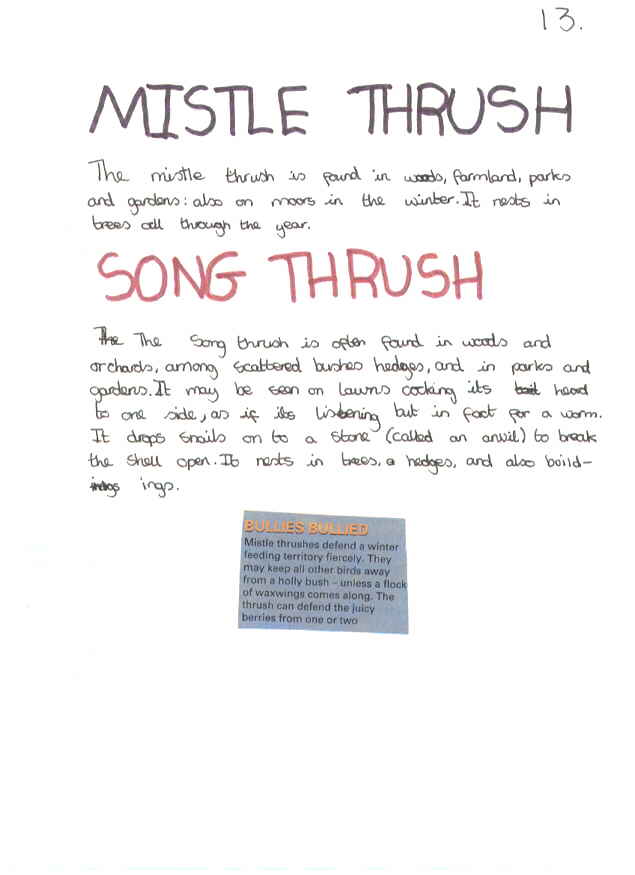 13.
MISTLE THRUSH
The mistle thrush is found in woods, farmland, parks
and gardens: also on moors in the winter. It nests in
trees all through the year.
SONG THRUSH
The The Song thrush is often found in woods and
orchards, among scattered bushes hedges, and in parks and
gardens. It may be seen on lawns cocking its tail head
to one side, as if its listening but in fact for a worm.
It drops snails on to a stone (called an anvil) to break
the shell open. It nests in trees, hedges, and also build-
ings.
BULLIES BULLIED
Mistle thrushes defend a winter
feeding territory fiercely. They
may keep all other birds away
from a holly bush – unless a flock
of waxwings comes along. The
thrush can defend the juicy
berries from one or two